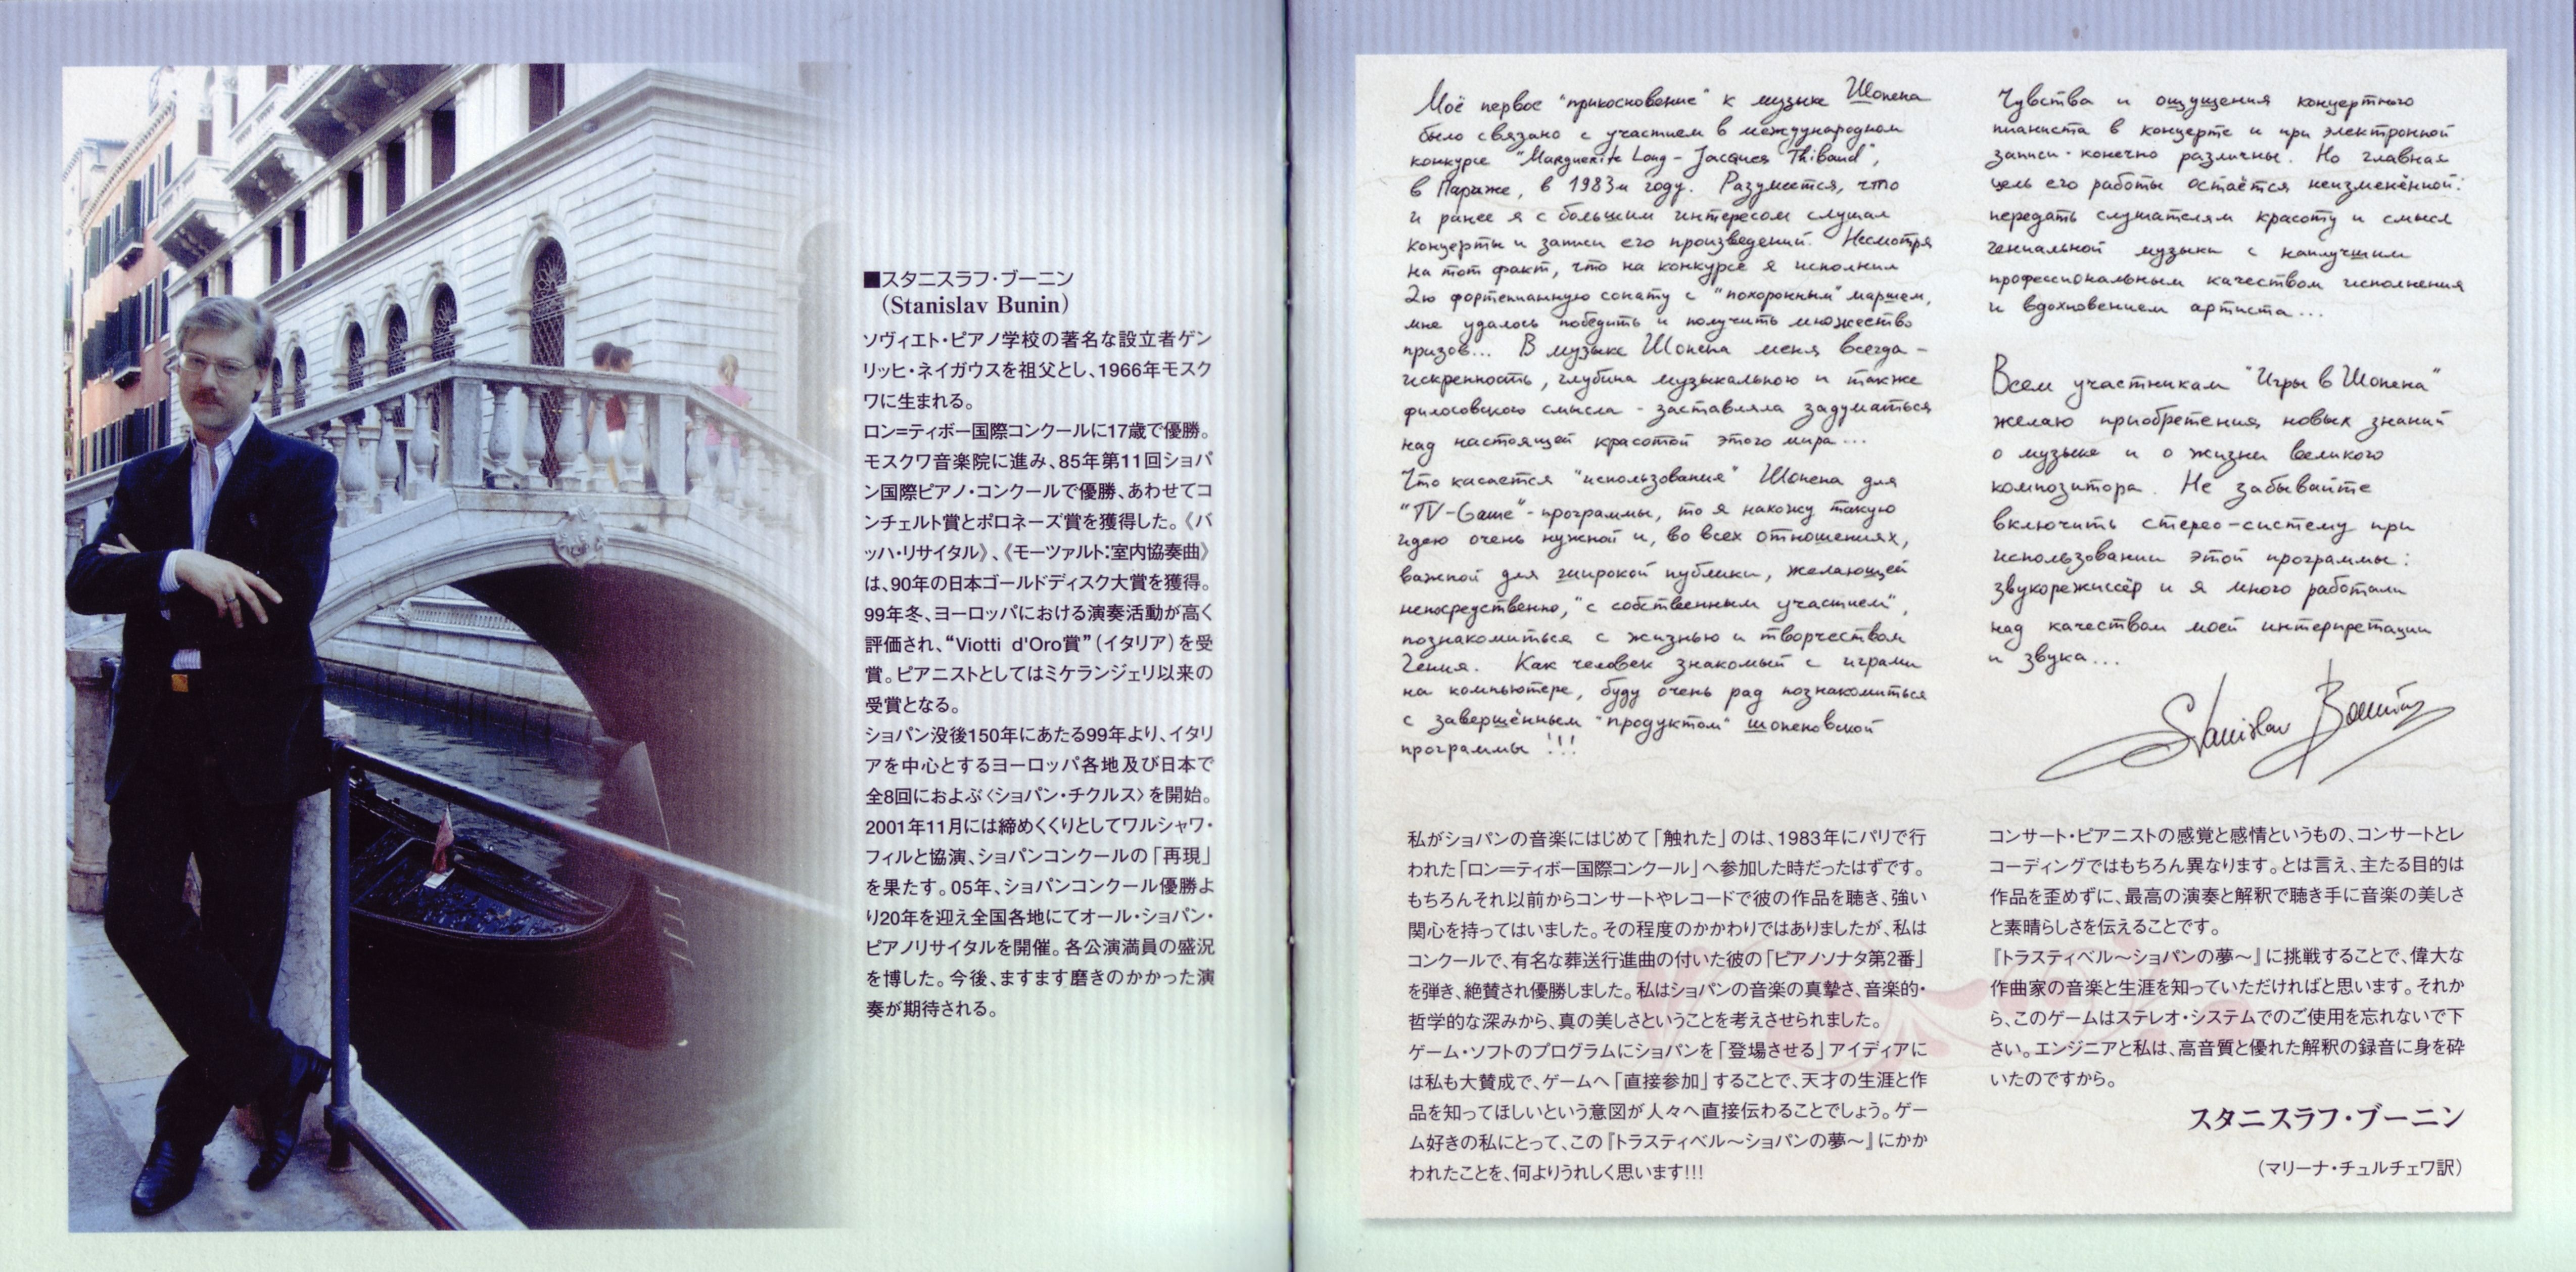 ■スタニスラフ・ブーニン
（Stanislav Bunin）
ソヴィエト・ピアノ学校の著名な設立者ゲン
リッヒ・ネイガウスを祖父とし、1966年モスク
ワに生まれる。
ロン=ティボー国際コンクールに17歳で優勝。
モスクワ音楽院に進み、85年第11回ショパ
ン国際ピアノ・コンクールで優勝、あわせてコ
ンチェルト賞とポロネーズ賞を獲得した。《バ
ッハ・リサイタル》、《モーツァルト:室内協奏曲》
は、90年の日本ゴールドディスク大賞を獲得。
99年冬、ヨーロッパにおける演奏活動が高く
評価され、“Viotti d'Oro賞”（イタリア）を受
賞。ピアニストとしてはミケランジェリ以来の
受賞となる。
ショパン没後150年にあたる99年より、イタリ
アを中心とするヨーロッパ各地及び日本で
全8回におよぶ〈ショパン・チクルス〉を開始。
2001年11月には締めくくりとしてワルシャワ・
フィルと協演、ショパンコンクールの「再現」
を果たす。05年、ショパンコンクール優勝よ
り20年を迎え全国各地にてオール・ショパン・
ピアノリサイタルを開催。各公演満員の盛況
を博した。今後、ますます磨きのかかった演
奏が期待される。
Моё первое "прикосновение" к музыке Шопена
было связано с участием в международном
конкурсе "Marguerite Long - Jacques Thibaud",
в Париже, в 1983м году. Разумеется, что
и ранее я с большим интересом слушал
концерты и записи его произведений. Несмотря
на тот факт, что на конкурсе я исполнил
2ю фортепианную сонату с "похоронным" маршем,
мне удалось победить и получить множество
призов... В музыке Шопена меня всегда -
искренность, глубина музыкального и также
философского смысла - заставляла задуматься
над настоящей красотой этого мира...
Что касается "использования" Шопена для
"TV-Game"- программы, то я нахожу такую
идею очень нужной и, во всех отношениях,
важной для широкой публики, желающей
непосредственно, "с собственным участием",
познакомиться с жизнью и творчеством
Гения. Как человек знакомый с играми
на компьютере, буду очень рад познакомиться
с завершённым "продуктом" шопеновской
программы !!!
Чувства и ощущения концертного
пианиста в концерте и при электронной
записи - конечно различны. Но главная
цель его работы остаётся неизменённой:
передать слушателям красоту и смысл
гениальной музыки с наилучшим
профессиональным качеством исполнения
и вдохновением артиста...
Всем участникам "Игры в Шопена"
желаю приобретения новых знаний
о музыке и о жизни великого
композитора. Не забывайте
включить стерео-систему при
использовании этой программы:
звукорежиссёр и я много работали
над качеством моей интерпретации
и звука...
Stanislav Bounin
私がショパンの音楽にはじめて「触れた」のは、1983年にパリで行
われた「ロン＝ティボー国際コンクール」へ参加した時だったはずです。
もちろんそれ以前からコンサートやレコードで彼の作品を聴き、強い
関心を持ってはいました。その程度のかかわりではありましたが、私は
コンクールで、有名な葬送行進曲の付いた彼の「ピアノソナタ第2番」
を弾き、絶賛され優勝しました。私はショパンの音楽の真摯さ、音楽的・
哲学的な深みから、真の美しさということを考えさせられました。
ゲーム・ソフトのプログラムにショパンを「登場させる」アイディアに
は私も大賛成で、ゲームへ「直接参加」することで、天才の生涯と作
品を知ってほしいという意図が人々へ直接伝わることでしょう。ゲー
ム好きの私にとって、この『トラスティベル〜ショパンの夢〜』にかか
われたことを、何よりうれしく思います!!!
コンサート・ピアニストの感覚と感情というもの、コンサートとレ
コーディングではもちろん異なります。とは言え、主たる目的は
作品を歪めずに、最高の演奏と解釈で聴き手に音楽の美しさ
と素晴らしさを伝えることです。
『トラスティベル〜ショパンの夢〜』に挑戦することで、偉大な
作曲家の音楽と生涯を知っていただければと思います。それか
ら、このゲームはステレオ・システムでのご使用を忘れないで下
さい。エンジニアと私は、高音質と優れた解釈の録音に身を砕
いたのですから。
スタニスラフ・ブーニン
（マリーナ・チュルチェワ訳）